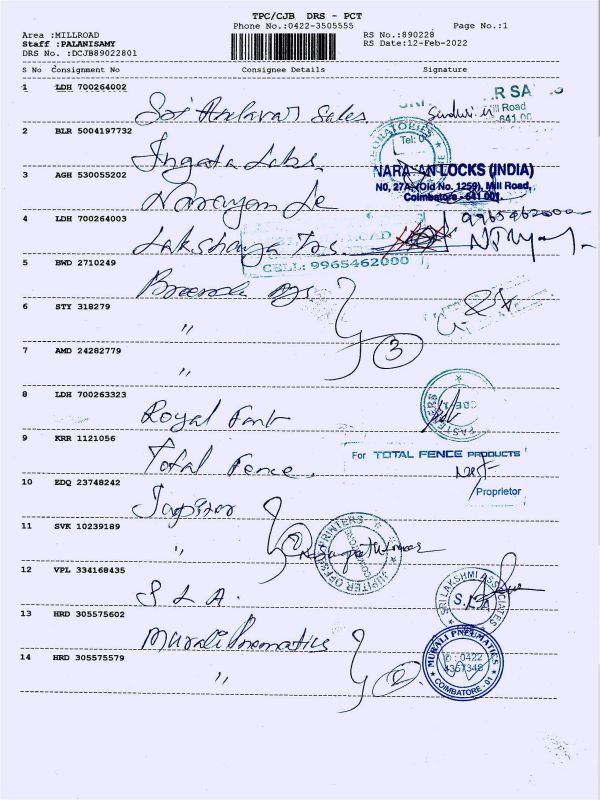 TPC/CJB DRS - PCT
Phone No.:0422-3505555 Page No.:1
Area :MILLROAD RS No.:890228
Staff :PALANISAMY RS Date:12-Feb-2022
DRS No. :DCJB89022801
S No Consignment No Consignee Details Signature
1 LDH 700264002
Sri Andavar Sales
R SA
Mill Road
641 00
2 BLR 5004197732
Labs.
Tel: 0
3 AGH 530055202
Narayan Le
NARAYAN LOCKS (INDIA)
N0, 27A (Old No. 1259), Mill Road,
Coimbatore - 641 001
4 LDH 700264003
9965462000
Lakshanya
CELL: 9965462000
5 BWD 2710249
6 STY 318279
"
7 AMD 24282779
" 3
8 LDH 700263323
Royal
9 KRR 1121056
Total Fence.
For TOTAL FENCE PRODUCTS
Proprietor
10 EDQ 23748242
Jupiter
11 SVK 10239189
" 2
JUPITER OFFSET PRINTERS
12 VPL 334168435
S L A.
SRI LAKSHMI ASSOCIATES
S.L.A
13 HRD 305575602
Murali Pnematics
MURALI PNEUMATICS
0422
4357348
COIMBATORE - 01
14 HRD 305575579
" 2